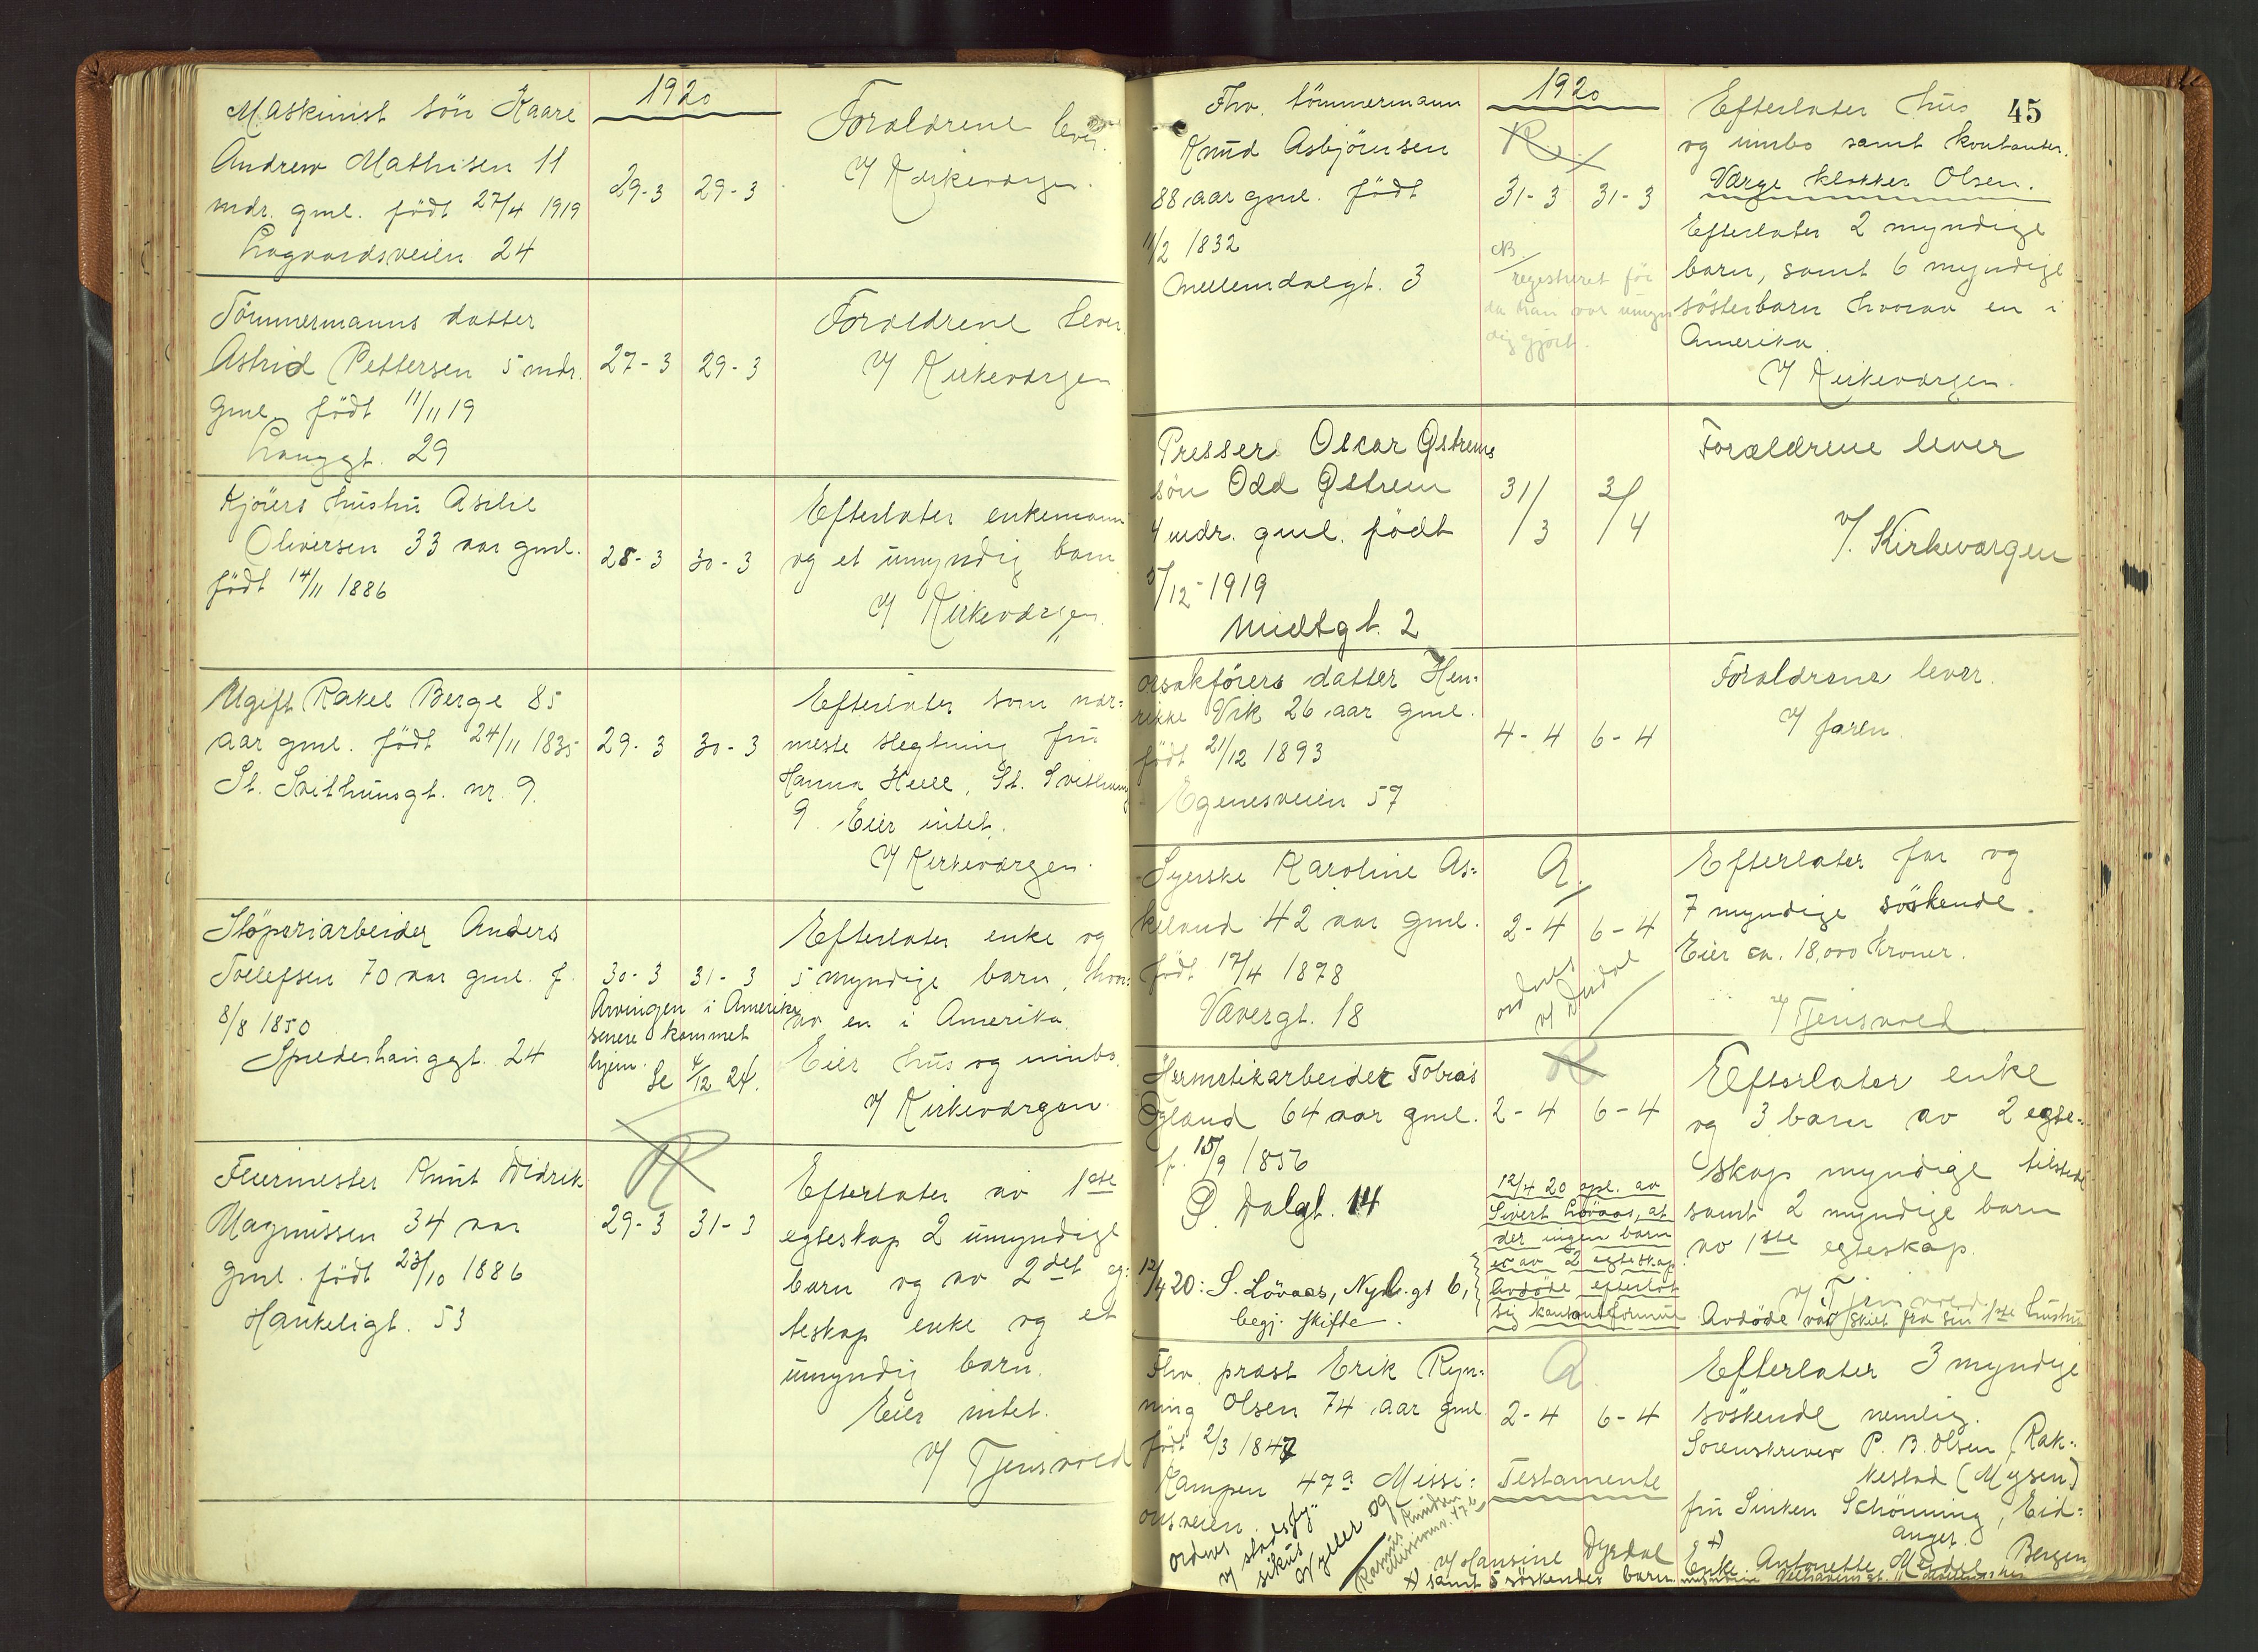 1920
Maskinist sön Kaare
Andrew Mathisen 11
mdr. gml. födt 27/4 1919
Lagaardsveien 24
29-3 29-3
Forældrene lever.
v/ Kirkeværgen.
Tömmermanns datter
Astrid Pettersen 5 mdr.
gml. födt 11/11 19
Langgt. 29
27-3 29-3
Forældrene lever.
v/ Kirkeværgen
Kjörers hustru Asilie
Oliversen 33 aar gml.
födt 14/11 1886
28-3 30-3
Efterlater enkemann
og et umyndig barn
v/ Kirkeværgen.
Ugift Rakel Berge 85
aar gml. födt 24/11 1835
St. Svithunsgt. nr. 9.
29-3 30-3
Efterlater som nær-
meste slegtning fru
Hanna Helle, St. Svithunsg
9. Eier intet.
v/ Kirkeværgen.
Stöperiarbeider Anders
Tollefsen 70 aar gml. f.
8/8 1850
Spilderhauggt. 24
30-3 31-3
Arvingen i Amerika
senere kommet
hjem. Se 4/12 24.
Efterlater enke og
5 myndige barn, hvor-
av en i Amerika.
Eier hus og innbo.
v/ Kirkeværgen.
Fyrmester Knut Didrik
Magnussen 34 aar
gml. födt 23/10 1886
Haukeligt. 53
R
29-3 31-3
Efterlater av 1ste
egteskap 2 umyndige
barn og av 2det eg-
teskap enke og et
umyndig barn.
Eier intet.
v/ Tjensvold
45
1920
Fhv. tömmermann
Knud Asbjörnsen
88 aar gml. födt
11/2 1832
Mellemdalgt. 3
R
31-3 31-3
NB.
registreret för
da han var umyn
dig gjort.
Efterlater hus
og innbo samt kontanter.
Værge klokker Olsen.
Efterlater 2 myndige
barn, samt 6 myndige
sösterbarn hvorav en i
Amerika.
v/ Kirkeværgen.
Presser Oscar Østrems
sön Odd Østrem
4 mdr. gml. födt
5/12-1919
Midtgt. 2
31/3 3/4
Forældrene lever
v/. Kirkeværgen
orsakförers datter Hen-
rikke Vik 26 aar gml.
födt 21/12 1893
Egenesveien 57
4-4 6-4
Forældrene lever.
v/ faren.
Syerske Karoline As-
keland 42 aar gml.
födt 17/4 1878
Vævergt. 18
A.
2-4 6-4
ordnes
v/ Dysdal
Efterlater far og
7 myndige söskende.
Eier ca. 18,000 kroner.
v/ Tjensvold
Hermetikarbeider Tobias
Ogland 64 aar gml.
f. 15/9 1856
P. Dalgt. 14
12/4 20: S. Lövaas, Nyb.gt 6,
begj. skifte.
R
2-4 6-4
12/4 20 opl. av
Sivert Lövaas, at
der ingen barn
er av 2 egteskap
Avdöde efterlot
sig kontantformue
Efterlater enke
og 3 barn av 2 egte-
skap myndige tilstede
samt 2 myndige barn
av 1ste egteskap.
v/ Tjensvold.
Avdöde var skilt fra sin 1ste hustru
Fhv. prest Erik Ryn-
ning Olsen 74 aar gml
födt 2/3 1847
Kampen 47a Missi-
onsveien.
ordnes v/ stadsfy-
sikus Nyller og
Rasmus Knudsen
Missionsv. 47 b
A
2-4 6-4
Testamente
Efterlater 3 myndige
söskende nemlig.
Sorenskriver P. B. Olsen, Rak-
kestad (Mysen)
fru Sinken Schönning, Eid-
anger x)
Enke Antonette Meidel, Bergen
v/ Hansine Dysdal
x) samt 5 söskendes barn